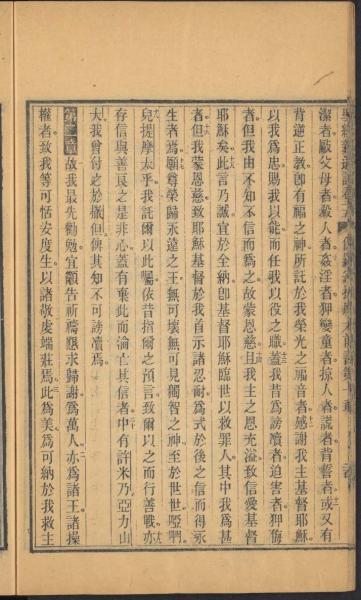 潔者毆父母者殺人者姦淫者狎孌童者掠人者謊者背誓者或又有
背逆正教卽有福之神所託於我榮光之福音者感謝我主基督耶穌
以我爲忠賜我以能而任我以役之職蓋我昔爲謗讟者迫害者狎侮
者但我由不知不信而爲之故蒙恩慈且我主之恩充溢致信愛基督
耶穌矣此言乃誠宜於全納卽基督耶穌臨世以救罪人其中我爲甚
者但我蒙恩慈致耶穌基督於我自示諸忍耐爲式於後之信而得永
生者焉願尊榮歸永遠之王無可壞無可見獨智之神至於世世啞𠵽
兒提摩太乎我託爾以此囑依昔指爾之預言致爾以之而行善戰亦
存信與善良之是非心蓋有棄此而淪亡其信者中有許米乃亞力山
大我曾付之於撒但俾其知不可謗讟焉
第二章 故我最先勸勉宜籲告祈禱懇求歸謝爲萬人亦爲諸王諸操
權者致我等可恬安度生以諸敬虔端莊焉此爲美爲可納於我救主